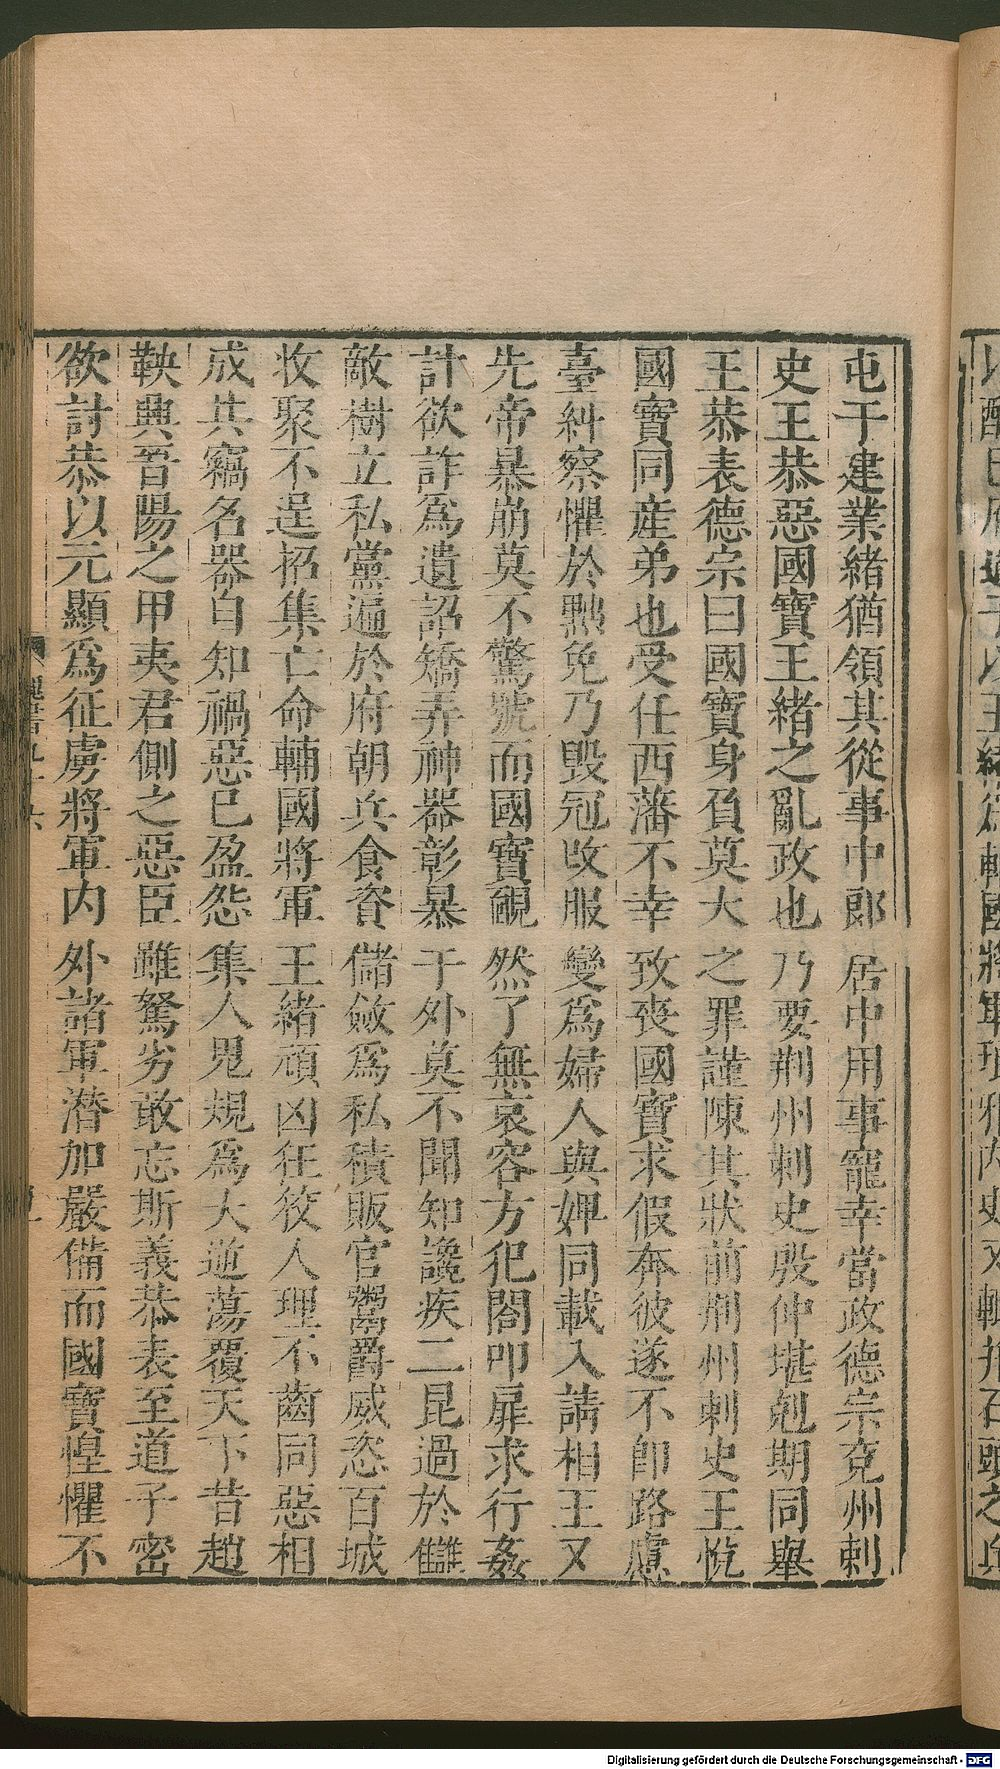 屯于建業緒猶領其從事中郎居中用事寵幸當政德宗兗州刺
史王恭惡國寶王緒之亂政也乃要荆州刺史殷仲堪剋期同舉
王恭表德宗曰國寶身負莫大之罪謹陳其狀前荆州刺史王忱
國寶同産弟也受任西藩不幸致喪國寶求假奔彼遂不卽路慮
臺糾察懼於黜免乃毀冠改服變爲婦人與婢同載入請相王又
先帝暴崩莫不驚號而國寶靦然了無哀容方犯閤叩扉求行姦
計欲詐爲遺詔矯弄神器彰暴于外莫不聞知讒疾二昆過於讎
敵樹立私黨遍於府朝兵食資儲斂爲私積販官鬻爵威恣百城
收聚不逞招集亡命輔國將軍王緒頑凶狂狡人理不齒同惡相
成共竊名器自知禍惡已盈怨集人鬼規爲大逆蕩覆天下昔趙
鞅興晉陽之甲夷君側之惡臣雖駑劣敢忘斯義恭表至道子密
欲討恭以元顯爲征虜將軍内外諸軍潛加嚴備而國寶惶懼不
Digitalisierung gefördert durch die Deutsche Forschungsgemeinschaft - DFG